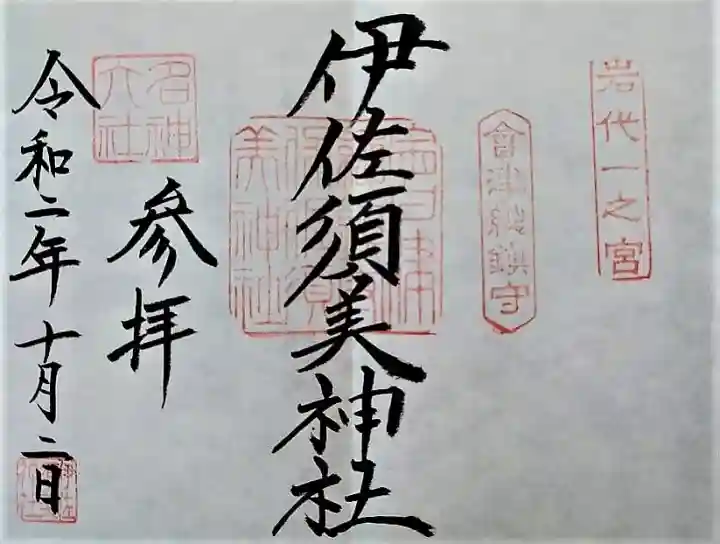 岩代一之宮
會津総鎮守
伊佐須美神社
名神
大社
参拝
令和二年十月二日